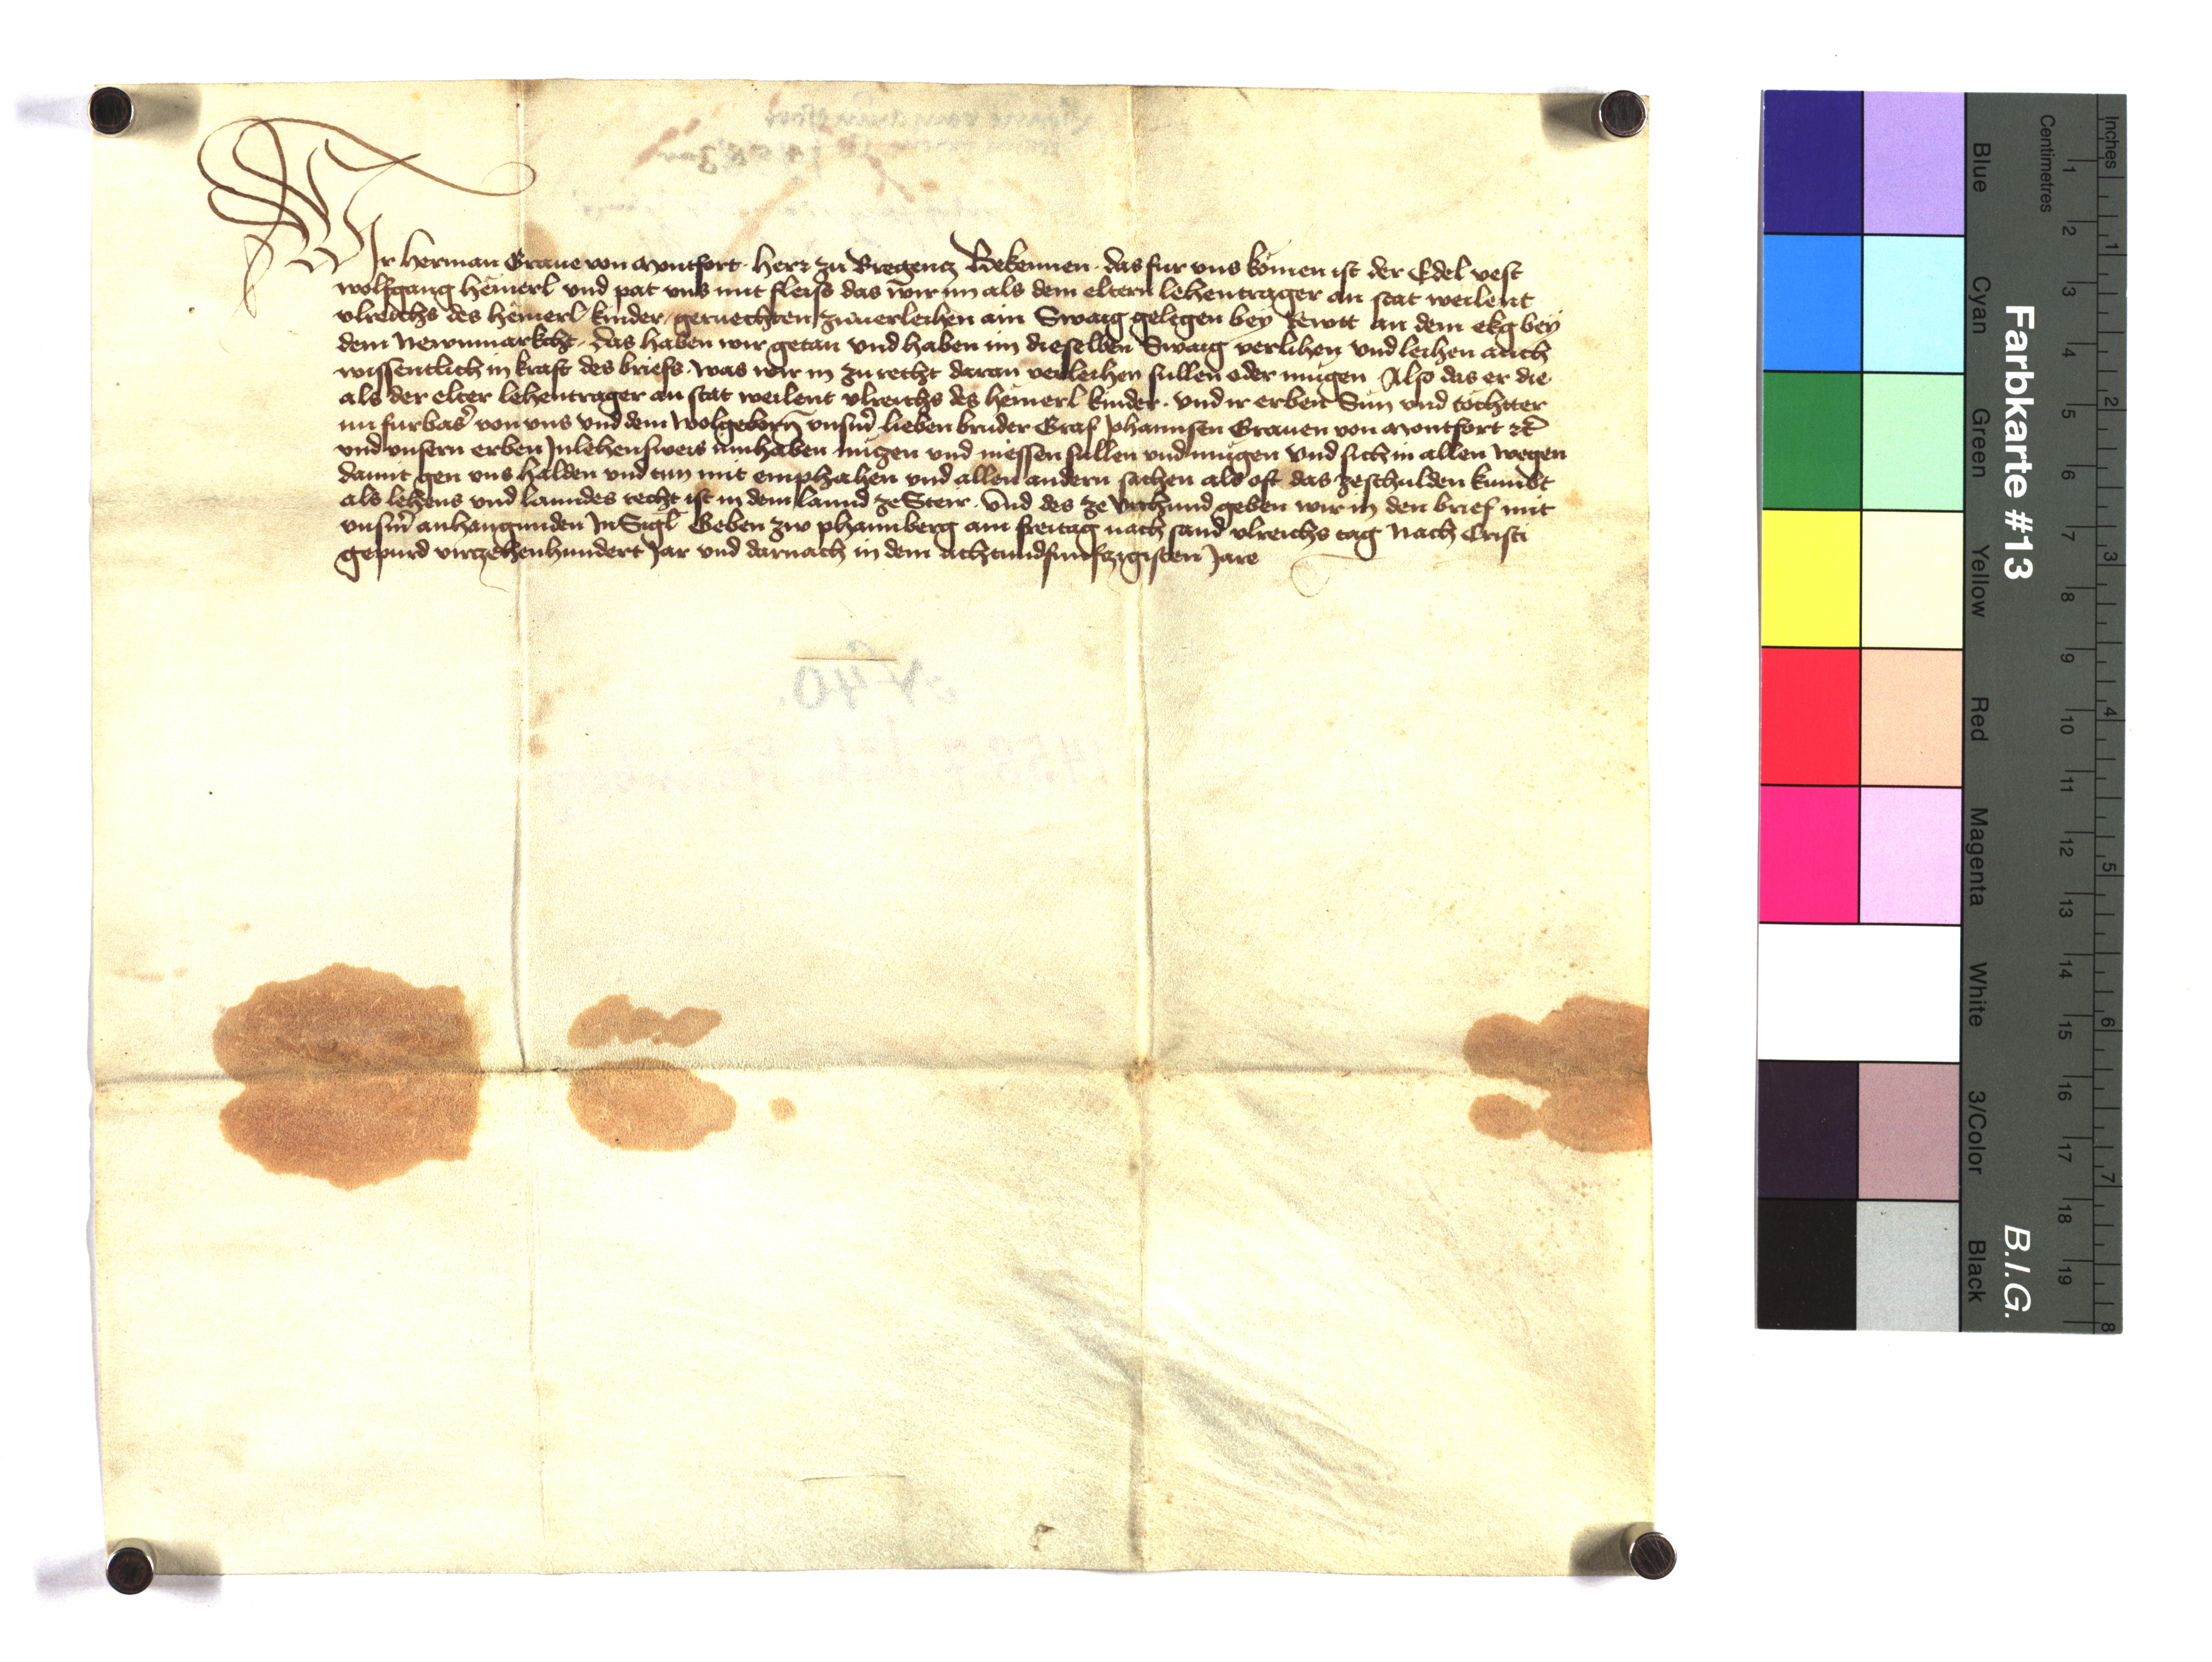 Wir Herman Graue von Montfort herr zu Bregencz Bekennen das fur vns komen ist der Edel vest
wolfgang hëmerl vnd pat vns mit fleiss das wir im als dem eltern lehentrager an stat weilent
vlreichs des hëmerl kinder geruechten zuuerleihen ain Swaig gelegen bey Rewtt an dem ekg bey
dem Newnmarkcht das haben wir getan vnd haben im dieselben Swaig verlihen vnd leihen auch
wissentlich in kraft des briefs was wir in zu recht daran verleihen sullen oder mugen Also das er die
als der elter lehentrager an stat weilent vlreichs des hëmerl kinder vnd ir erben Sün vnd töchtter
nu furbas von vns vnd dem wolgeborn vnserm lieben bruder Graf Johannsen Grauen von Montfort etc
vnd vnsern erben Inlehensweis innhaben nüczen vnd niessen sullen vnd mugen vnd sich in allen wegen
damit gen vns halden vnd tun mit emphahen vnd allen andern sachen als oft das zeschulden kumbt
als lehens vnd lanndes recht ist in dem lannd ze Steir vnd des ze vrchund geben wir in den brief mit
vnserm anhangunden InSigl Geben zw phannberg am freitag nach sand vlreichs tag Nach Cristi
gepurd virczehenhundert Jar vnd darnach in dem Achtundfunfczigisten Jare
N 40.
Farbkarte #13
B.I.G.
Blue
Cyan
Green
Yellow
Red
Magenta
White
3/Color
Black
Centimetres
1 2 3 4 5 6 7 8 9 10 11 12 13 14 15 16 17 18 19
Inches
1 2 3 4 5 6 7 8